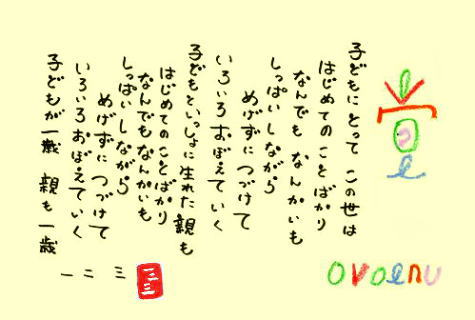 子どもにとって この世は
はじめての ことばかり
なんでも なんかいも
しっぱいしながら
めげずに つづけて
いろいろ おぼえていく
子どもといっしょに 生れた 親も
はじめての ことばかり
なんでも なんかいも
しっぱいしながら
めげずに つづけて
いろいろ おぼえていく
子どもが一歳 親も 一歳
一 二 三
ovoenu